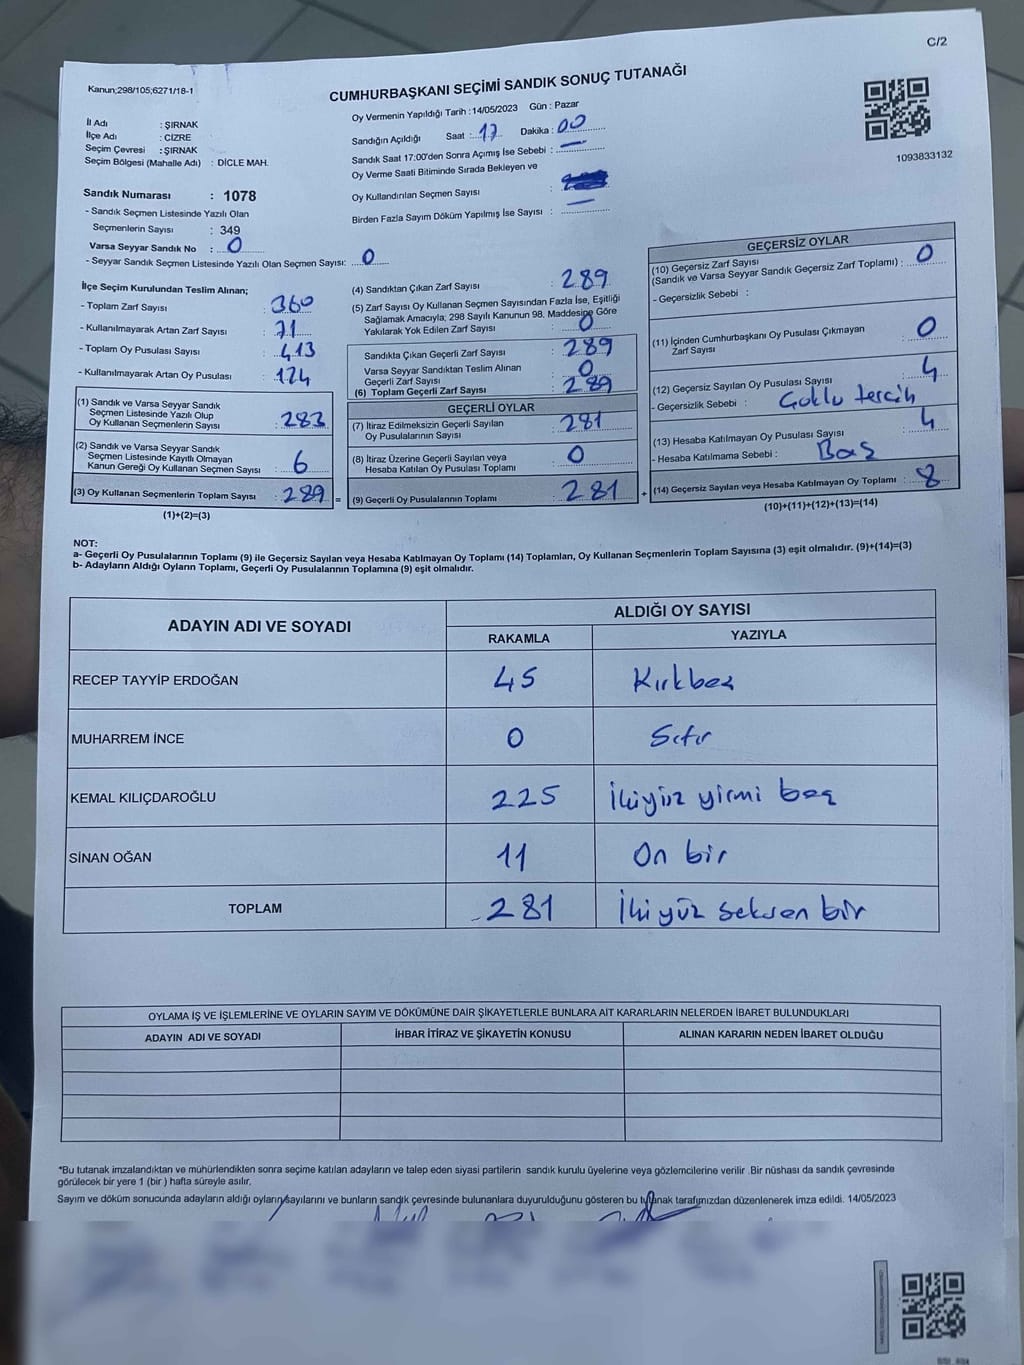 C/2
Kanun;298/105;6271/18-1
CUMHURBAŞKANI SEÇİMİ SANDIK SONUÇ TUTANAĞI
İl Adı : ŞIRNAK
İlçe Adı : CİZRE
Seçim Çevresi : ŞIRNAK
Seçim Bölgesi (Mahalle Adı) : DİCLE MAH.
Sandık Numarası : 1078
- Sandık Seçmen Listesinde Yazılı Olan
Seçmenlerin Sayısı : 349
Varsa Seyyar Sandık No : 0
- Seyyar Sandık Seçmen Listesinde Yazılı Olan Seçmen Sayısı: 0
Oy Vermenin Yapıldığı Tarih : 14/05/2023 Gün : Pazar
Sandığın Açıldığı Saat : 17 Dakika : 00
Sandık Saat 17:00'den Sonra Açımış İse Sebebi : —
Oy Verme Saati Bitiminde Sırada Bekleyen ve
Oy Kullandırılan Seçmen Sayısı :
Birden Fazla Sayım Döküm Yapılmış İse Sayısı : —
1093833132
İlçe Seçim Kurulundan Teslim Alınan;
- Toplam Zarf Sayısı : 360
- Kullanılmayarak Artan Zarf Sayısı : 71
- Toplam Oy Pusulası Sayısı : 413
- Kullanılmayarak Artan Oy Pusulası : 124
(1) Sandık ve Varsa Seyyar Sandık
Seçmen Listesinde Yazılı Olup
Oy Kullanan Seçmenlerin Sayısı : 283
(2) Sandık ve Varsa Seyyar Sandık
Seçmen Listesinde Kayıtlı Olmayan
Kanun Gereği Oy Kullanan Seçmen Sayısı : 6
(3) Oy Kullanan Seçmenlerin Toplam Sayısı : 289 =
(1)+(2)=(3)
(4) Sandıktan Çıkan Zarf Sayısı : 289
(5) Zarf Sayısı Oy Kullanan Seçmen Sayısından Fazla İse, Eşitliği
Sağlamak Amacıyla; 298 Sayılı Kanunun 98. Maddesine Göre
Yakılarak Yok Edilen Zarf Sayısı : 0
Sandıkta Çıkan Geçerli Zarf Sayısı : 289
Varsa Seyyar Sandıktan Teslim Alınan
Geçerli Zarf Sayısı : 0
(6) Toplam Geçerli Zarf Sayısı : 289
GEÇERLİ OYLAR
(7) İtiraz Edilmeksizin Geçerli Sayılan
Oy Pusulalarının Sayısı : 281
(8) İtiraz Üzerine Geçerli Sayılan veya
Hesaba Katılan Oy Pusulası Toplamı : 0
(9) Geçerli Oy Pusulalarının Toplamı : 281 +
GEÇERSİZ OYLAR
(10) Geçersiz Zarf Sayısı
(Sandık ve Varsa Seyyar Sandık Geçersiz Zarf Toplamı) : 0
- Geçersizlik Sebebi :
(11) İçinden Cumhurbaşkanı Oy Pusulası Çıkmayan
Zarf Sayısı : 0
(12) Geçersiz Sayılan Oy Pusulası Sayısı : 4
- Geçersizlik Sebebi : Çoklu tercih
(13) Hesaba Katılmayan Oy Pusulası Sayısı : 4
- Hesaba Katılmama Sebebi : Boş
(14) Geçersiz Sayılan veya Hesaba Katılmayan Oy Toplamı : 8
(10)+(11)+(12)+(13)=(14)
NOT:
a- Geçerli Oy Pusulalarının Toplamı (9) ile Geçersiz Sayılan veya Hesaba Katılmayan Oy Toplamı (14) Toplamları, Oy Kullanan Seçmenlerin Toplam Sayısına (3) eşit olmalıdır. (9)+(14)=(3)
b- Adayların Aldığı Oyların Toplamı, Geçerli Oy Pusulalarının Toplamına (9) eşit olmalıdır.
ADAYIN ADI VE SOYADI ALDIĞI OY SAYISI
RAKAMLA YAZIYLA
RECEP TAYYİP ERDOĞAN 45 Kırkbeş
MUHARREM İNCE 0 Sıfır
KEMAL KILIÇDAROĞLU 225 İkiyüz yirmi beş
SİNAN OĞAN 11 On bir
TOPLAM 281 İkiyüz seksen bir
OYLAMA İŞ VE İŞLEMLERİNE VE OYLARIN SAYIM VE DÖKÜMÜNE DAİR ŞİKAYETLERLE BUNLARA AİT KARARLARIN NELERDEN İBARET BULUNDUKLARI
ADAYIN ADI VE SOYADI İHBAR İTİRAZ VE ŞİKAYETİN KONUSU ALINAN KARARIN NEDEN İBARET OLDUĞU
*Bu tutanak imzalandıktan ve mühürlendikten sonra seçime katılan adayların ve talep eden siyasi partilerin sandık kurulu üyelerine veya gözlemcilerine verilir .Bir nüshası da sandık çevresinde
görülecek bir yere 1 (bir ) hafta süreyle asılır.
Sayım ve döküm sonucunda adayların aldığı oyların sayılarını ve bunların sandık çevresinde bulunanlara duyurulduğunu gösteren bu tutanak tarafımızdan düzenlenerek imza edildi. 14/05/2023